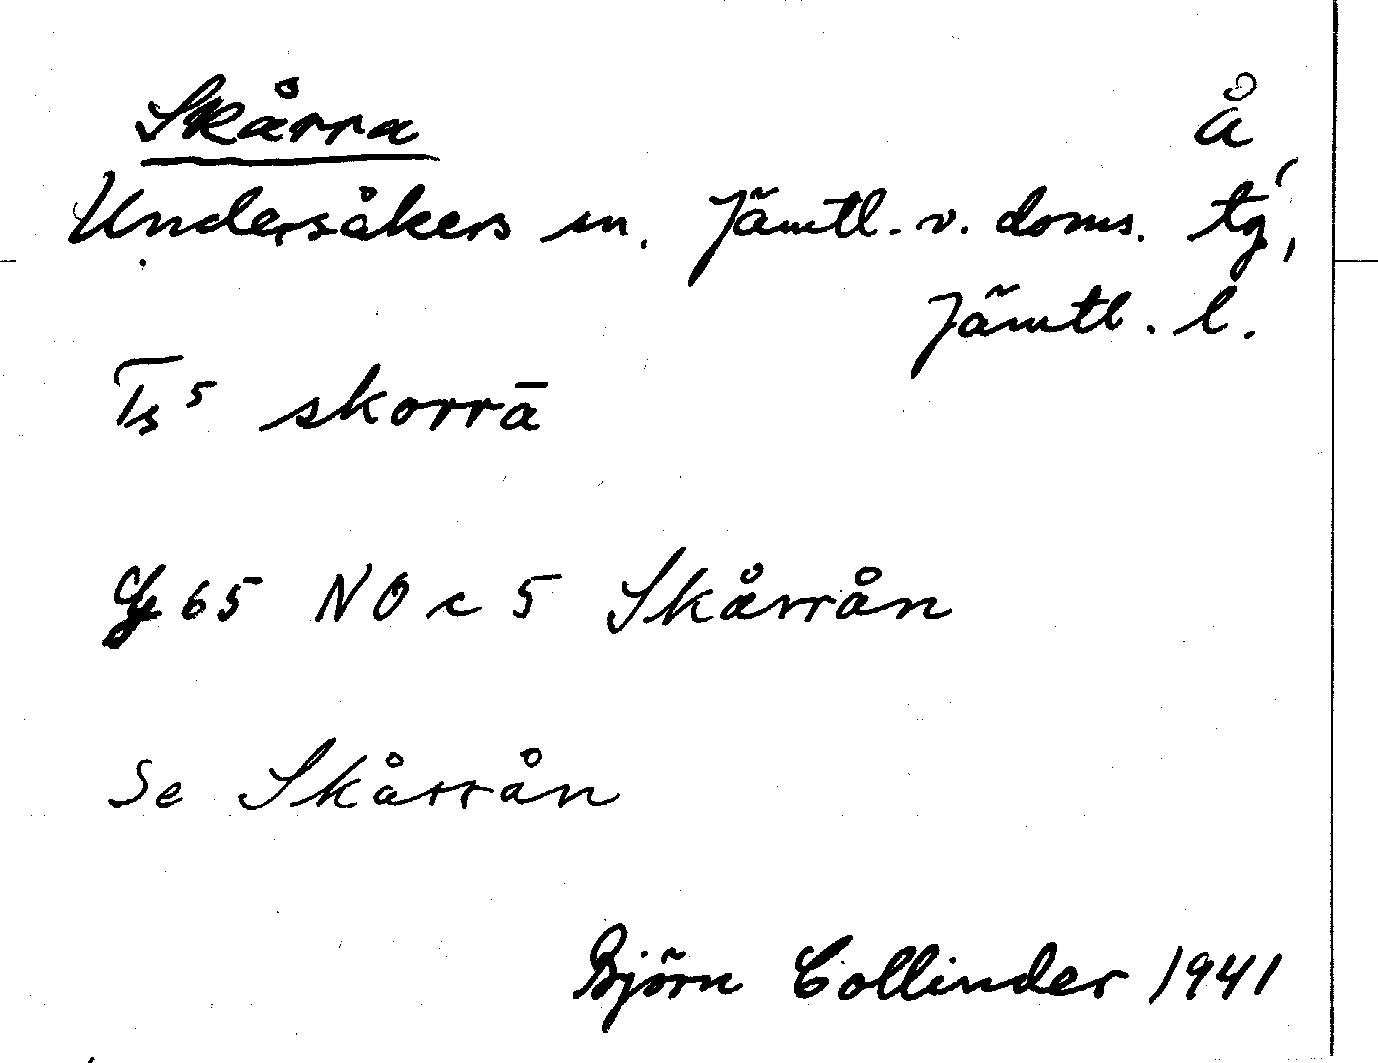 Skårra Å
Undersåkers sn. Jämtl. v. doms. tg,
Jämtl. l.
Ts⁵ skorrā
65 NO c 5 Skårrån
Se Skårrån
Björn Collinder 1941